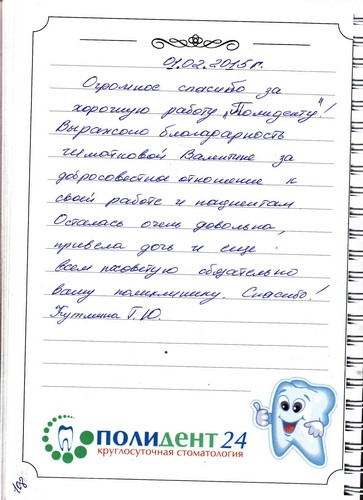 01.02.2015г.
Огромное спасибо за
хорошую работу "Полиденту"!
Выражаю благодарность
Валентине за
добросовестное отношение к
своей работе и пациентам
Осталась очень довольна,
привела дочь и еще
всем посоветую обязательно
вашу поликлинику. Спасибо!
Т. Ю.
ПОЛИДЕНТ 24
круглосуточная стоматология
168